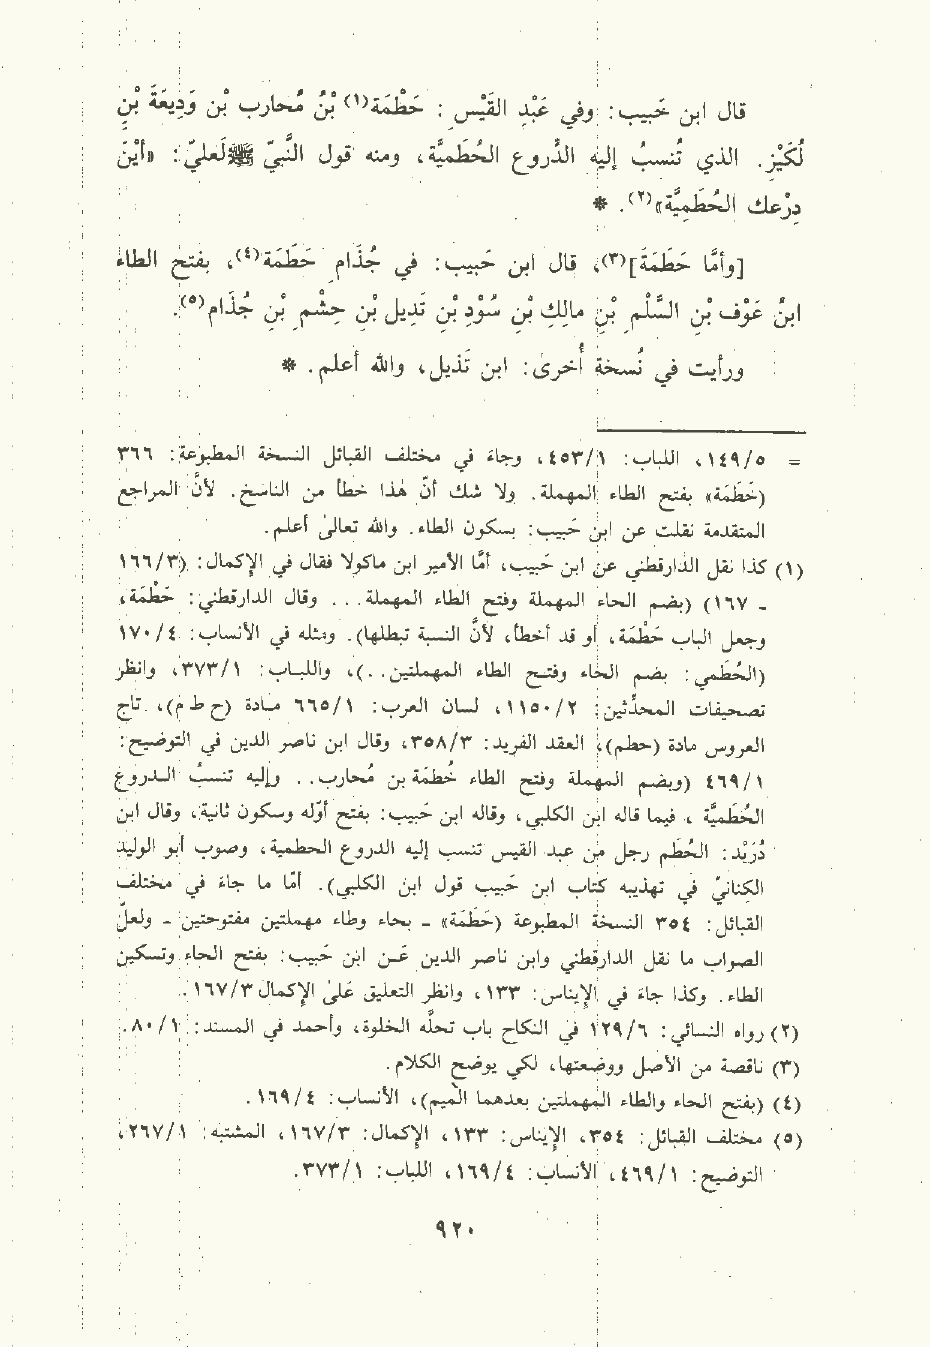 قال ابن حَبيب: وفي عَبْدِ القَيْس: حَطْمَة(١) بْنُ مُحارب بْن وَدِيعَةَ بْنِ
لُكَيْزِ. الذي تُنسبُ إليه الدُّروع الحُطَمِيَّة، ومنه قول النَّبيّ ﷺ لَعليّ: «أيْنَ
دِرْعك الحُطَمِيَّة»(٢). *
[وأمَّا حَطَمَةَ](٣)، قال ابن حَبيب: في جُذَامِ حَطَمَة(٤)، بفتح الطاء
ابنُ عَوْف بْنِ السَّلْمِ بْنِ مالِكِ بْنِ سُوْدِ بْنِ تَديل بْنِ حِشْمِ بْنِ جُذَام(٥).
ورأيت في نُسخة أُخرى: ابن تَذيل، والله أعلم. *
= ١٤٩/٥، اللباب: ٤٥٣/١، وجاءَ في مختلف القبائل النسخة المطبوعة: ٣٦٦
(خَطَمَة» بفتح الطاء المهملة. ولا شك أنّ هٰذا خطأ من الناسخ. لأنَّ المراجع
المتقدمة نقلت عن ابن حَبيب: بسكون الطاء. والله تعالىٰ أعلم.
(١) كذا نقل الدارقطني عن ابن حَبيب، أمَّا الأمير ابن ماكولا فقال في الإكمال: (١٦٦/٣
- ١٦٧) (بضم الحاء المهملة وفتح الطاء المهملة... وقال الدارقطني: حَطْمَة،
وجعل الباب حَطْمَة، أو قد أخطأ، لأنَّ النسبة تبطلها). ومثله في الأنساب: ١٧٠/٤
(الحُطَمي: بضم الحاء وفتح الطاء المهملتين..)، واللباب: ٣٧٣/١، وانظر
تصحيفات المحدِّثين: ١١٥٠/٢، لسان العرب: ٦٦٥/١ مادة (ح ط م)، تاج
العروس مادة (حطم)، العقد الفريد: ٣٥٨/٣، وقال ابن ناصر الدين في التوضيح:
٤٦٩/١ (وبضم المهملة وفتح الطاء حُطَمَة بن مُحارب.. وإليه تنسبُ الدروع
الحُطَمِيَّة، فيما قاله ابن الكلبي، وقاله ابن حَبيب: بفتح أوّله وسكون ثانية، وقال ابن
دُرَيْد: الحُطَم رجل من عبد القيس تنسب إليه الدروع الحطمية، وصوب أبو الوليد
الكنانيّ في تهذيبه كتاب ابن حَبيب قول ابن الكلبي). أمّا ما جاءَ في مختلف
القبائل: ٣٥٤ النسخة المطبوعة (حَطَمَة» - بحاء وطاء مهملتين مفتوحتين - ولعلّ
الصواب ما نقل الدارقطني وابن ناصر الدين عَن ابن حَبيب: بفتح الحاء وتسكين
الطاء. وكذا جاءَ في الإيناس: ١٣٣، وانظر التعليق عَلىٰ الإكمال ١٦٧/٣.
(٢) رواه النسائي: ١٢٩/٦ في النكاح باب تحلَّه الخلوة، وأحمد في المسند: ٨٠/١.
(٣) ناقصة من الأصل ووضعتها، لكي يوضح الكلام.
(٤) (بفتح الحاء والطاء المهملتين بعدهما المِيم)، الأنساب: ١٦٩/٤.
(٥) مختلف القبائل: ٣٥٤، الإيناس: ١٣٣، الإكمال: ١٦٧/٣، المشتبه: ٢٦٧/١،
التوضيح: ٤٦٩/١، الأنساب: ١٦٩/٤، اللباب: ٣٧٣/١.
٩٢٠